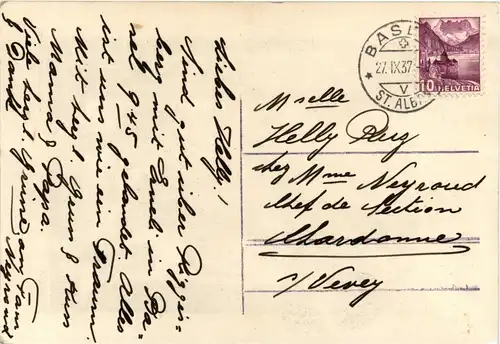 Liebes Helly!
Sind gut über Röggi-
berg mit Emil in Ba-
sel 9 45 gelandet Alles
ist uns wie ein Traum.
Mit herzl Gruss & Kuss
Mama & Papa.
Viele herzl Grüsse an Fam
& Dank Neyroud
BASEL
27.IX.37
V
ST. ALB
10 HELVETIA
Mselle
Helly
chez Mme Neyroud
Chef de Section
Chardonne
s/ Vevey